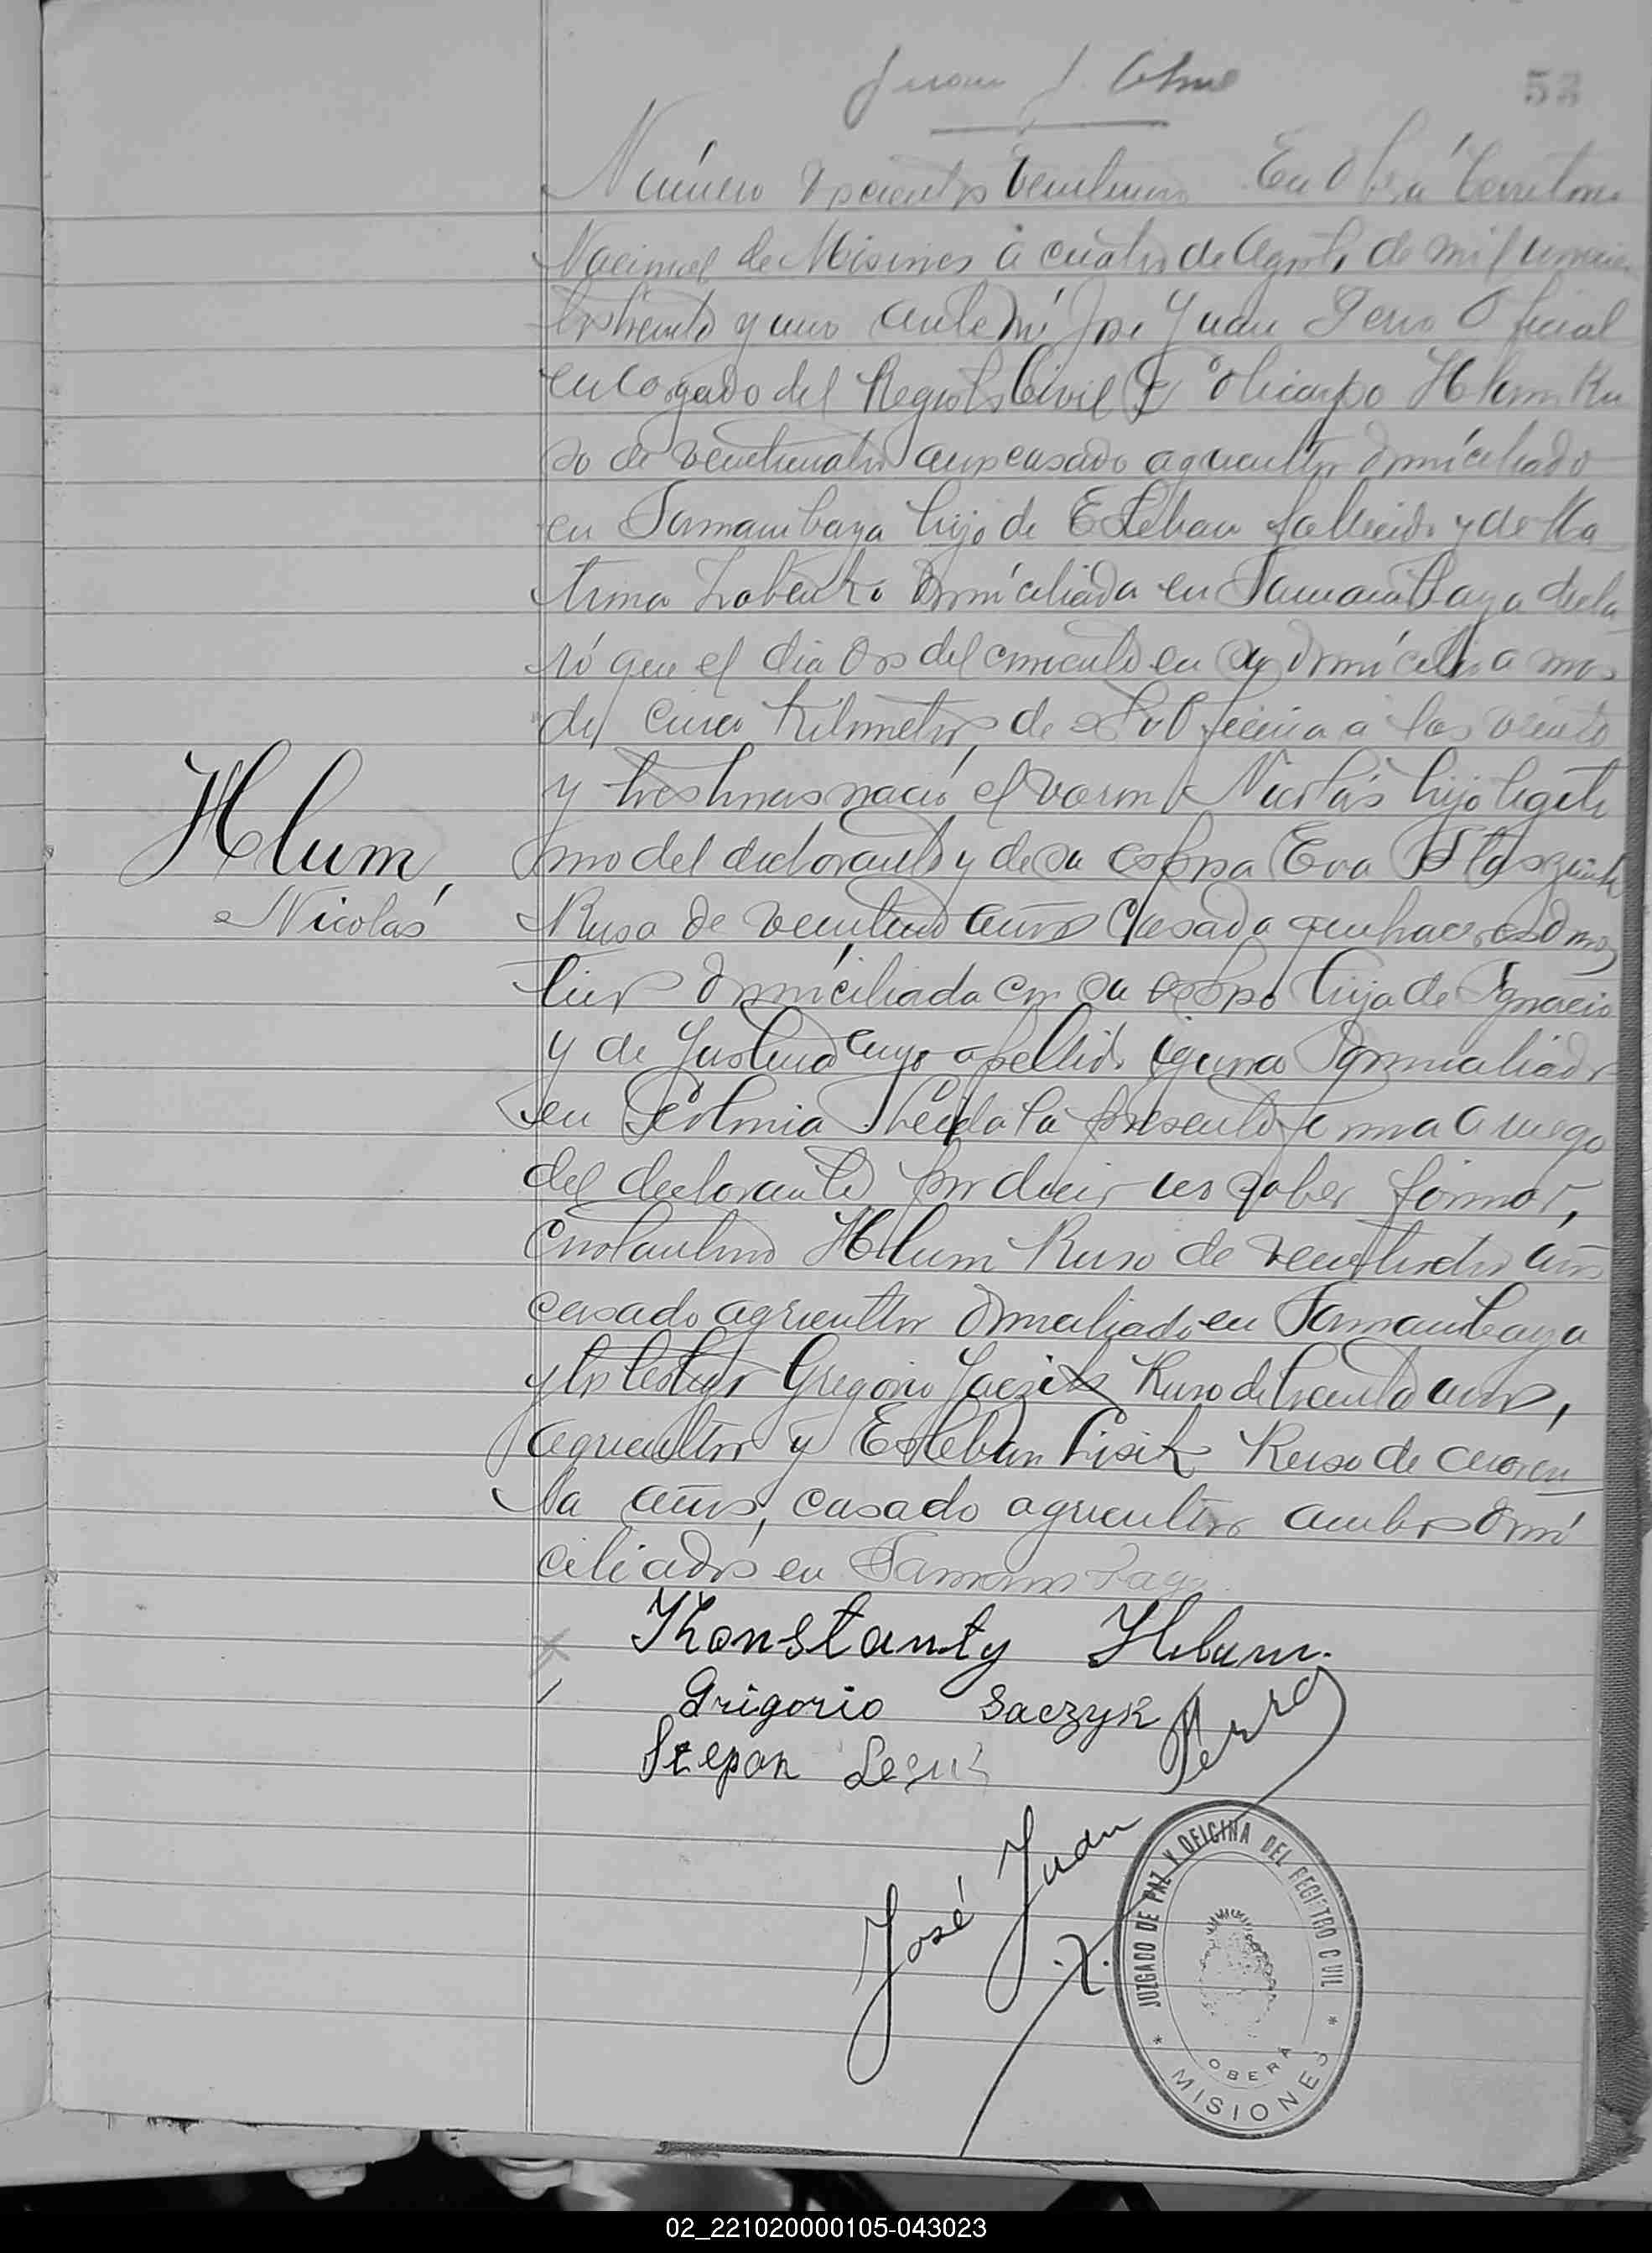 53
Número doscientos veintiuno En Oberá Territorio
Nacional de Misiones á cuatro de Agosto de mil novecien
tos treinta y uno ante mí José Juan Perro Oficial
encargado del Registro Civil Policarpo Hlum Ru
so de veinticuatro años casado agricultor domiciliado
en Samambaya hijo de Esteban fallecido y de Ka
trina domiciliada en Samambaya decla
ró que el dia dos del corriente en su domicilio a mas
de cinco Kilometros de esta Oficina a las veinte
y tres horas nació el varon Nicolás hijo legiti
mo del declarante y de su esposa Eva
Rusa de años Casada quehaceres domes
ticos domiciliada con su esposo hija de Ignacio
y de Justina cuyo apellido ignora domiciliados
en Polonia Leida la presente firma a ruego
del declarante por decir no saber firmar,
Constantino Hlum Ruso de años
casado agricultor domiciliado en Samambaya
y los testigos Gregorio Saczik Ruso de treinta años,
agricultor y Esteban Lisik Ruso de cuaren
ta años, casado agricultor ambos domi
ciliados en Samambaya
Hlum,
Nicolás
Konstanty Hlum.
Grigorio Saczyk
Stepan
José Juan Perro
JUZGADO DE PAZ Y OFICINA DEL REGISTRO CIVIL
OBERA
* MISIONES *
02_221020000105-043023